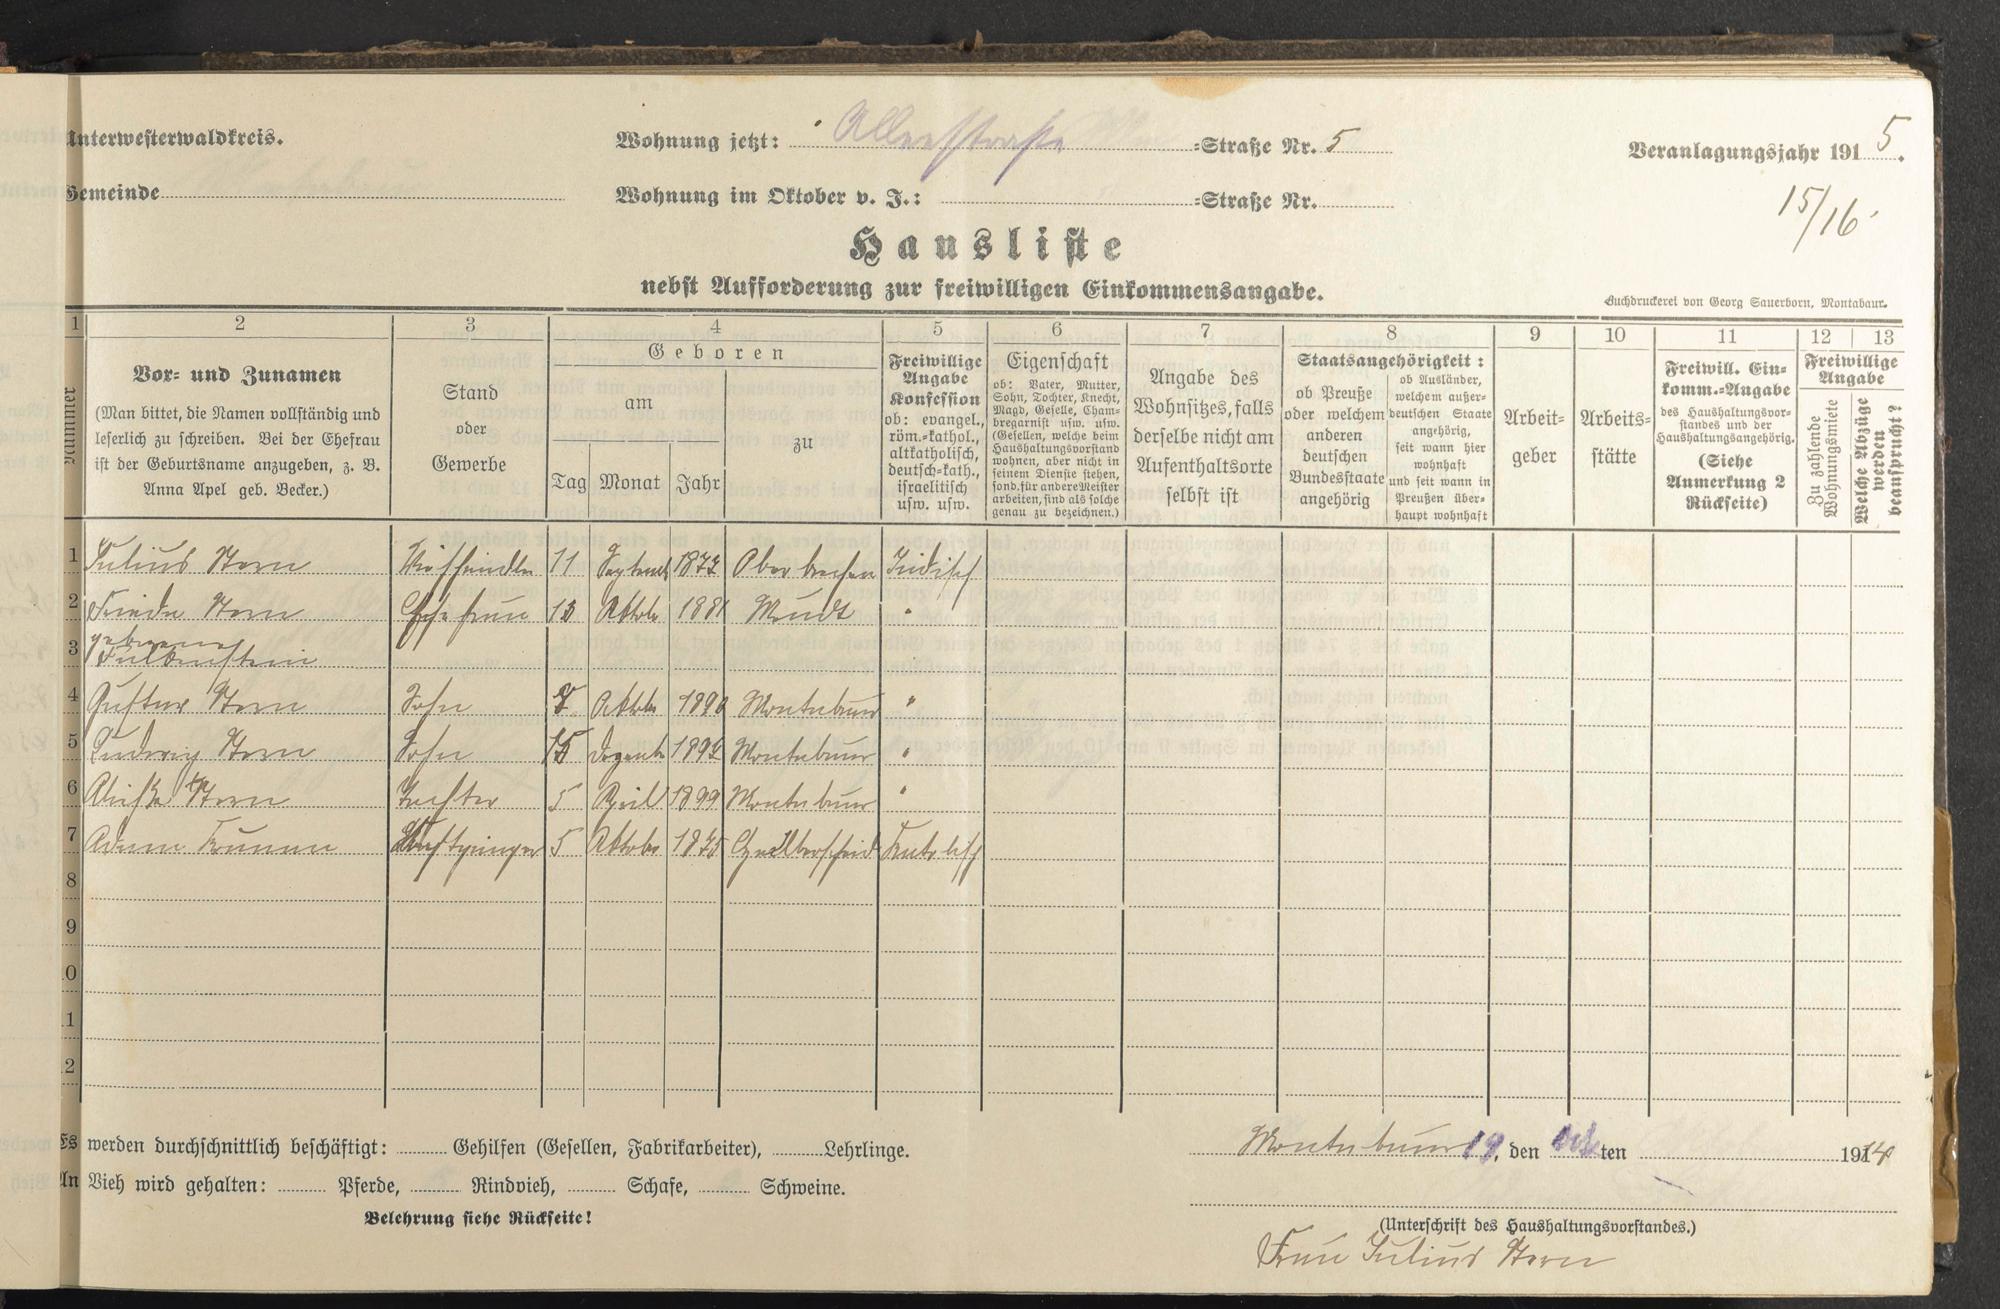 Unterwesterwaldkreis.
Wohnung jetzt: Alleestrasse =Straße Nr. 5
Veranlagungsjahr 1915.
Gemeinde
Wohnung im Oktober v. J.: =Straße Nr.
15/16
Hausliste
nebst Aufforderung zur freiwilligen Einkommensangabe.
Buchdruckerei von Georg Sauerborn, Montabaur.
1 2 3 4 5 6 7 8 9 10 11 12 13
Nummer
Vor- und Zunamen
(Man bittet, die Namen vollständig und
leserlich zu schreiben. Bei der Ehefrau
ist der Geburtsname anzugeben, z. B.
Anna Apel geb. Becker.)
Stand
oder
Gewerbe
Geboren
am
Tag Monat Jahr
zu
Freiwillige
Angabe
Konfession
ob: evangel.,
röm.-kathol.,
altkatholisch,
deutsch-kath.,
israelitisch
usw. usw.
Eigenschaft
ob: Vater, Mutter,
Sohn, Tochter, Knecht,
Magd, Geselle, Cham-
bregarnist usw. usw.
(Gesellen, welche beim
Haushaltungsvorstand
wohnen, aber nicht in
seinen Dienste stehen,
sond. für andere Meister
arbeiten, sind als solche
genau zu bezeichnen.)
Angabe des
Wohnsitzes, falls
derselbe nicht am
Aufenthaltsorte
selbst ist
Staatsangehörigkeit:
ob Preuße
oder welchem
anderen
deutschen
Bundesstaate
angehörig
ob Ausländer,
welchem außer-
deutschen Staate
angehörig,
seit wann hier
wohnhaft
und seit wann in
Preußen über-
haupt wohnhaft
Arbeit-
geber
Arbeits-
stätte
Freiwill. Ein-
komm.-Angabe
des Haushaltungsvor-
standes und der
Haushaltungsangehörig.
(Siehe
Anmerkung 2
Rückseite)
Freiwillige
Angabe
Zu zahlende
Wohnungsmiete
Welche Abzüge
werden
beansprucht?
1 Julius Stern Viehhändler 11 September 1872 Oberbrechen Jüdisch
2 Frieda Stern Ehefrau 13 Oktober 1881 "
3 geborene
4 Gustav Stern Sohn Oktober Montabaur "
5 Ludwig Stern Sohn 15 Dezember Montabaur "
6 Stern Tochter 5 April 1899 Montabaur "
7 Adam 5 Oktober Katolisch
8
9
10
11
12
Es werden durchschnittlich beschäftigt: Gehilfen (Gesellen, Fabrikarbeiter), Lehrlinge.
Montabaur 19, den Okt ten 1914
An Vieh wird gehalten: Pferde, Rindvieh, Schafe, Schweine.
Belehrung siehe Rückseite!
(Unterschrift des Haushaltungsvorstandes.)
Frau Julius Stern